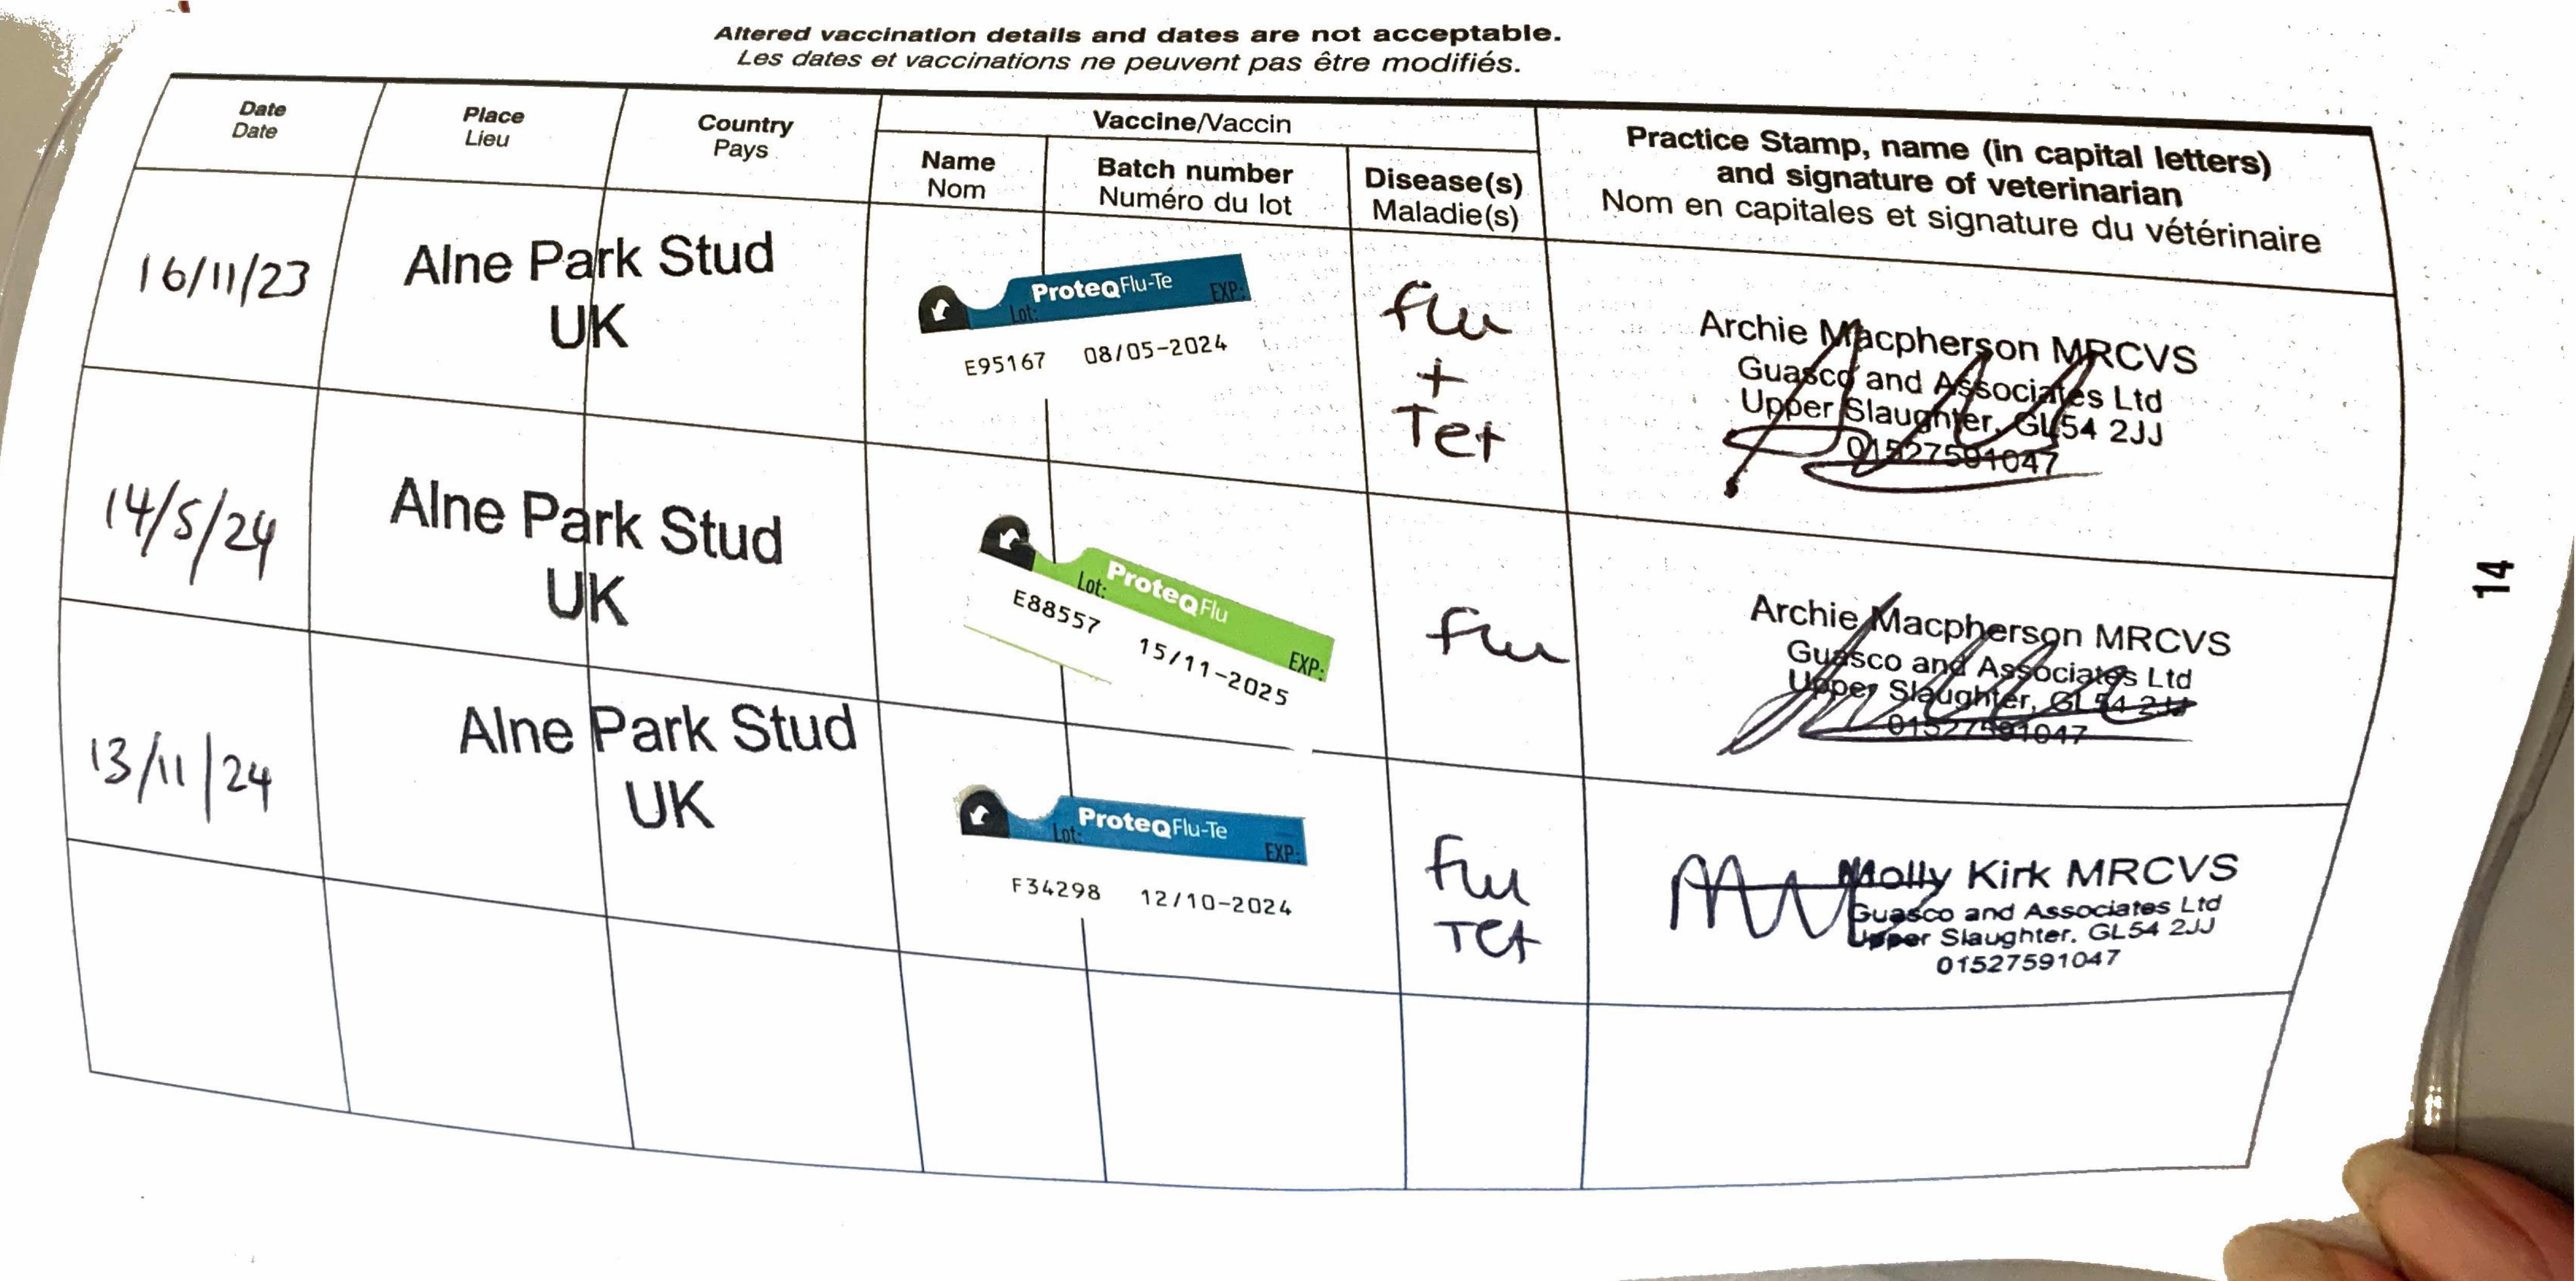 Altered vaccination details and dates are not acceptable.
Les dates et vaccinations ne peuvent pas être modifiés.
Date
Date
Place
Lieu
Country
Pays
Vaccine/Vaccin
Name
Nom
Batch number
Numéro du lot
Disease(s)
Maladie(s)
Practice Stamp, name (in capital letters)
and signature of veterinarian
Nom en capitales et signature du vétérinaire
16/11/23
Alne Park Stud
UK
ProteqFlu-Te
Lot: EXP:
E95167 08/05-2024
flu
+
Tet
Archie Macpherson MRCVS
Guasco and Associates Ltd
Upper Slaughter, GL54 2JJ
01527591047
14/5/24
Alne Park Stud
UK
ProteqFlu
Lot: EXP:
E88557 15/11-2025
flu
Archie Macpherson MRCVS
Guasco and Associates Ltd
Upper Slaughter, GL54 2JJ
01527591047
13/11/24
Alne Park Stud
UK
ProteqFlu-Te
Lot: EXP:
F34298 12/10-2024
flu
Tet
Molly Kirk MRCVS
Guasco and Associates Ltd
Upper Slaughter. GL54 2JJ
01527591047
14